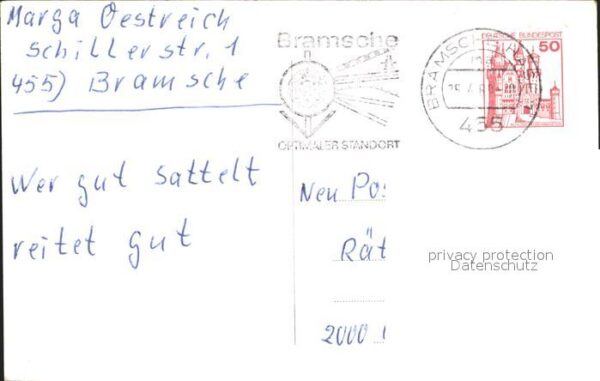 Marga Oestreich
Schillerstr. 1
455) Bramsche
Bramsche
OPTIMALER STANDORT
DEUTSCHE BUNDESPOST
50
BRAMSCHE
Wer gut sattelt
reitet gut
Neu Pos
Rät
2000
privacy protection
Datenschutz